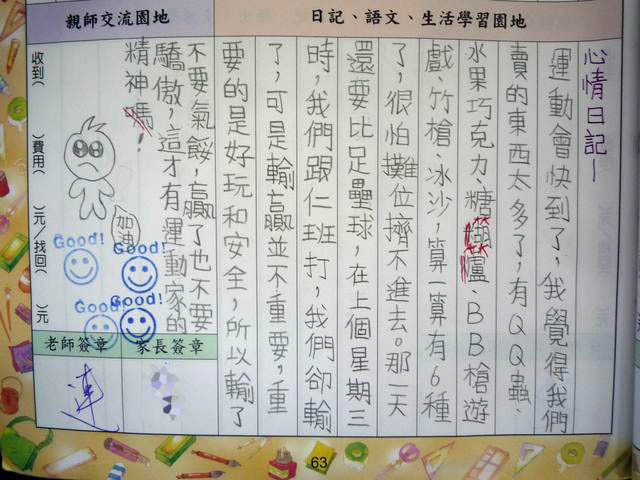 親師交流園地
日記、語文、生活學習園地
心情日記一
運動會快到了，我覺得我們
賣的東西太多了，有QQ蟲、
水果巧克力、糖葫蘆、BB槍遊
戲、竹槍、冰沙，算一算有6種
了，很怕攤位擠不進去。那一天
還要比足壘球，在上個星期三
時，我們跟仁班打，我們卻輸
了，可是輸贏並不重要，重
要的是好玩和安全，所以輸了
不要氣餒，贏了也不要
驕傲，這才有運動家的
精神嗎！
加油
Good!
Good!
Good!
Good!
收到( )費用( )元/找回( )元
老師簽章
家長簽章
連
63